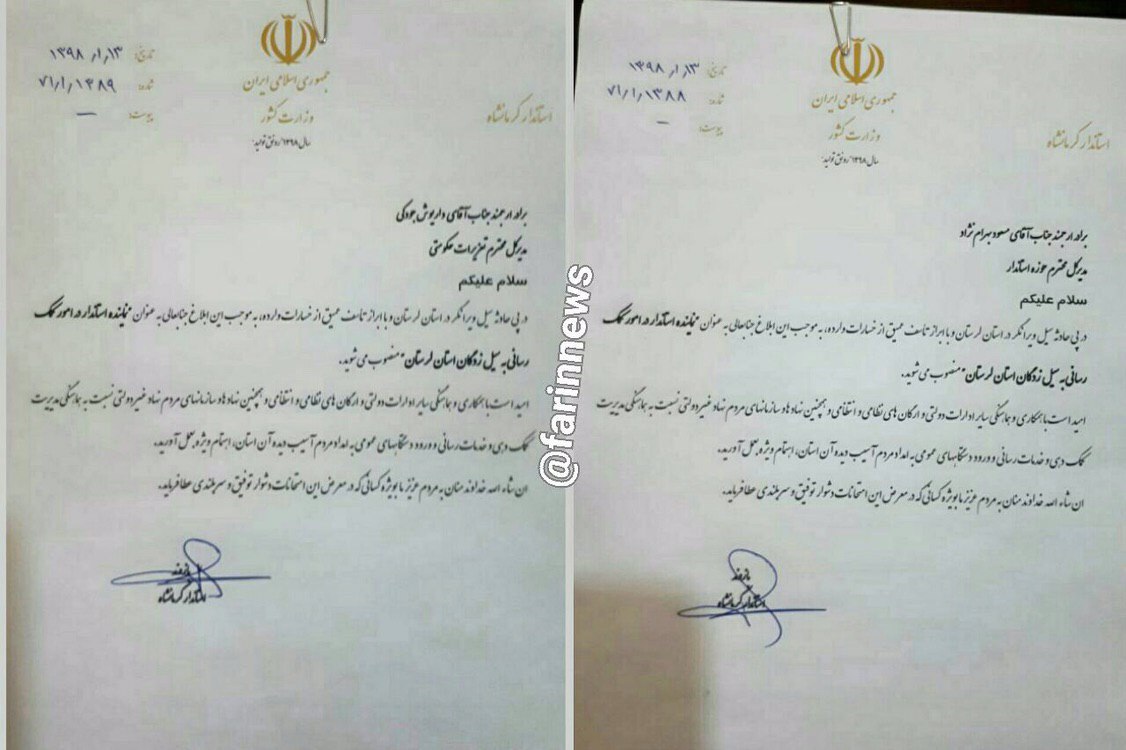 جمهوری اسلامی ایران
وزارت کشور
سال ۱۳۹۸ رونق تولید
استاندار کرمانشاه
تاریخ: ۱۳؍۱؍۱۳۹۸
شماره: ۷۱؍۱؍۱۳۸۸
پیوست: —
برادر ارجمند جناب آقای مسعود بهرام نژاد
مدیرکل محترم حوزه استاندار
سلام علیکم
در پی حادثه سیل ویرانگر در استان لرستان و با ابراز تاسف عمیق از خسارات وارده، به موجب این ابلاغ جنابعالی به عنوان "نماینده استاندار در امور کمک
رسانی به سیل زدگان استان لرستان" منصوب می شوید.
امید است با همکاری و هماهنگی سایر ادارات دولتی و ارکان های نظامی و انتظامی و همچنین نهادها و سازمانهای مردم نهاد غیر دولتی نسبت به هماهنگی مدیریت
کمک دهی و خدمات رسانی و ورود دستگاههای عمومی به امداد مردم آسیب دیده آن استان، اهتمام ویژه بعمل آورید.
ان شاء الله خداوند منان به مردم عزیز ما بویژه کسانی که در معرض این امتحانات دشوار توفیق و سربلندی عطا فرماید.
بازوند
استاندار کرمانشاه
@farinnews
جمهوری اسلامی ایران
وزارت کشور
سال ۱۳۹۸ رونق تولید
استاندار کرمانشاه
تاریخ: ۱۳؍۱؍۱۳۹۸
شماره: ۷۱؍۱؍۱۳۸۹
پیوست: —
برادر ارجمند جناب آقای داریوش جودکی
مدیرکل محترم تعزیرات حکومتی
سلام علیکم
در پی حادثه سیل ویرانگر در استان لرستان و با ابراز تاسف عمیق از خسارات وارده، به موجب این ابلاغ جنابعالی به عنوان "نماینده استاندار در امور کمک
رسانی به سیل زدگان استان لرستان" منصوب می شوید.
امید است با همکاری و هماهنگی سایر ادارات دولتی و ارکان های نظامی و انتظامی و همچنین نهادها و سازمانهای مردم نهاد غیر دولتی نسبت به هماهنگی مدیریت
کمک دهی و خدمات رسانی و ورود دستگاههای عمومی به امداد مردم آسیب دیده آن استان، اهتمام ویژه بعمل آورید.
ان شاء الله خداوند منان به مردم عزیز ما بویژه کسانی که در معرض این امتحانات دشوار توفیق و سربلندی عطا فرماید.
بازوند
استاندار کرمانشاه